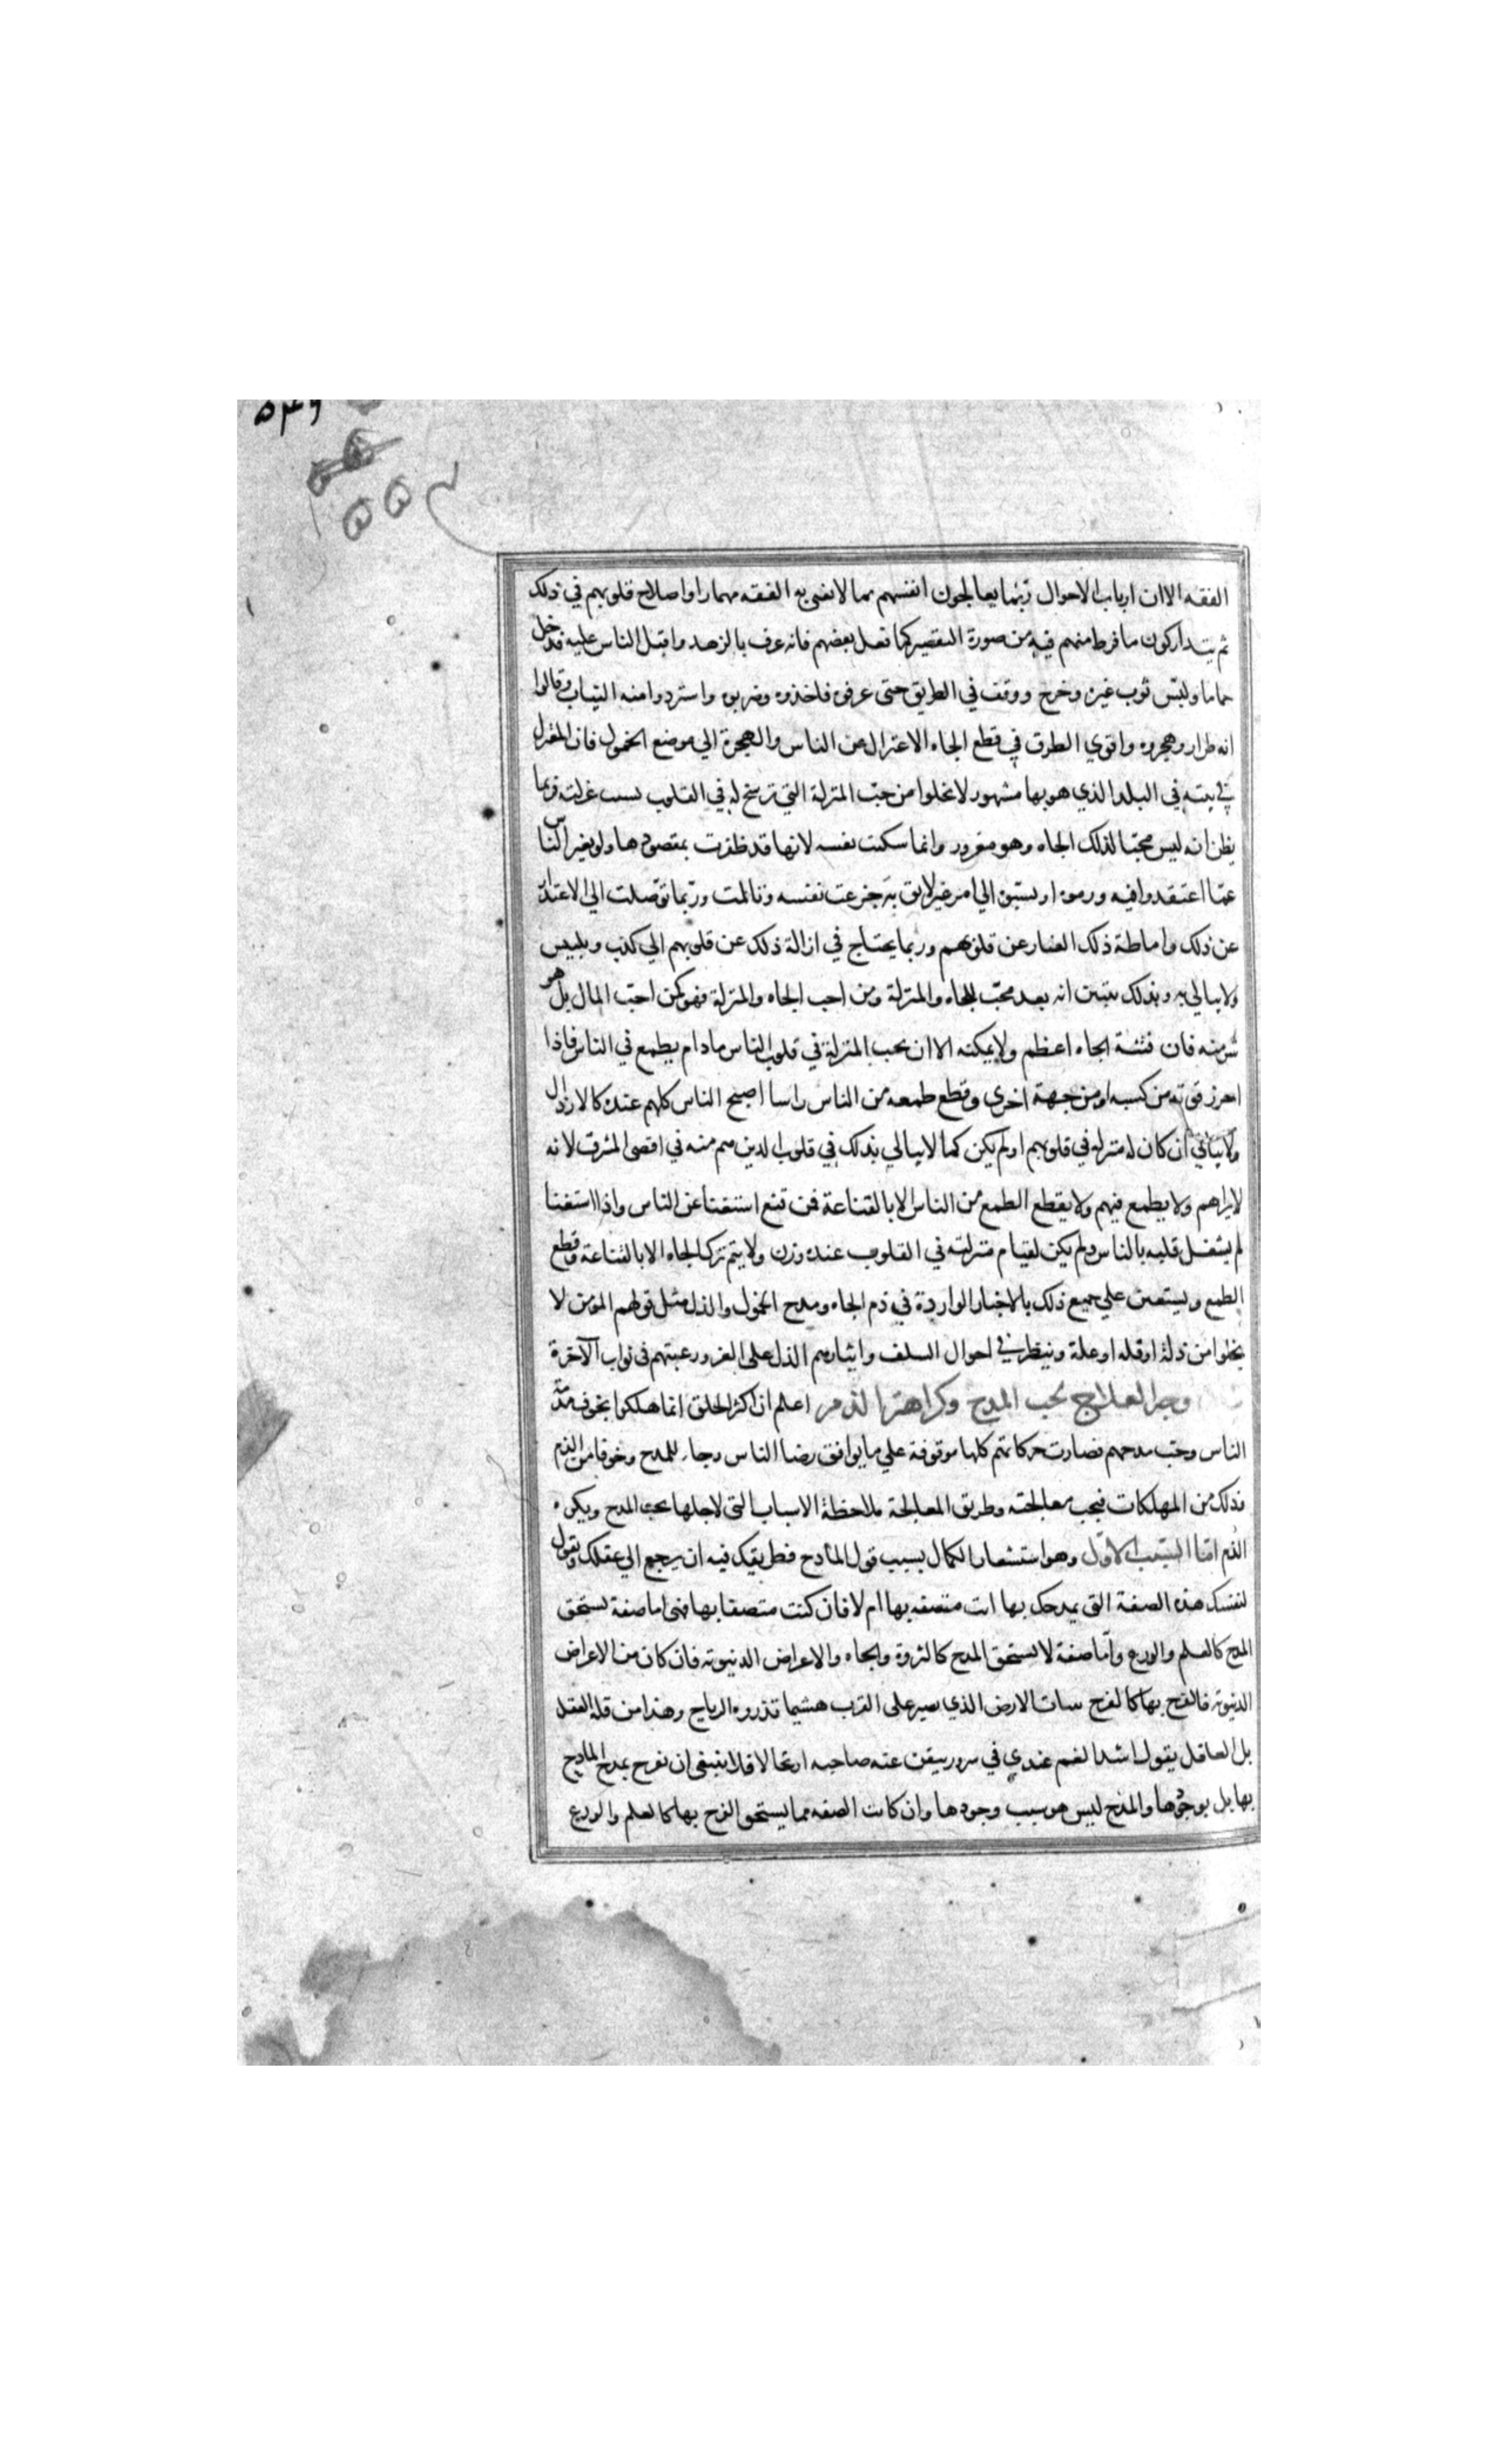 ٥٤٦
الفقه الا ان ارباب الاحوال ربما يعالجون انفسهم بما لا يفتى به الفقه مهما راوا صلاح قلوبهم في ذلك
ثم يتداركون ما فرط منهم فيه من صورة التقصير كما فعل بعضهم فانه عرف بالزهد واقبل الناس عليه فدخل
حماما ولبس ثوب غيره وخرج ووقف في الطريق حتى عرفوه فاخذوه وضربوه واستردوا منه الثياب وقالوا
انه طرار وهجروه واقوي الطرق في قطع الجاه الاعتزال عن الناس والهجرة الي موضع الخمول فان المعتزل
في بيته في البلد الذي هو بها مشهور لا يخلوا من حب المنزلة التي ترسخ له في القلوب بسبب عزلته فربما
يظن انه ليس محبا لذلك الجاه وهو مغرور وانما سكنت نفسه لانها قد ظفرت بمقصودها ولو تغير الناس
عما اعتقدوا فيه وذموه او نسبوه الي امر غير لايق به جزعت نفسه وتالمت وربما توصلت الي الاعتذار
عن ذلك واماطة ذلك الغبار عن قلوبهم وربما يحتاج في ازالة ذلك عن قلوبهم الي كذب وتلبيس
ولا يبالي به وبذلك يتبين انه بعد محب للجاه والمنزلة ومن احب الجاه والمنزلة فهو كمن احب المال بل هو
شر منه فان فتنة الجاه اعظم ولا يمكنه الا ان يحب المنزلة في قلوب الناس ما دام يطمع في الناس فاذا
احرز قوته من كسبه او من جهة اخري وقطع طمعه من الناس راسا اصبح الناس كلهم عنده كالارذال
ولا يبالي ان كان له منزلة في قلوبهم او لم يكن كما لا يبالي بذلك في قلوب الذين هم منه في اقصى المشرق لانه
لا يراهم ولا يطمع فيهم ولا يقطع الطمع من الناس الا بالقناعة فمن قنع استغنا عن الناس واذا استغنا
لم يشغل قلبه بالناس ولم يكن لقيام منزلته في القلوب عنده وزن ولا يتم ترك الجاه الا بالقناعة وقطع
الطمع ويستعين علي جميع ذلك بالاخبار الواردة في ذم الجاه ومدح الخمول والذل مثل قولهم المؤمن لا
يخلوا من ذلة او قلة او علة وينظر في احوال السلف وايثارهم الذل على العز ورغبتهم في ثواب الآخرة
وجه العلاج لحب المدح وكراهة الذم اعلم ان اكثر الخلق انما هلكوا بخوف مذمة
الناس وحب مدحهم فصارت حركاتهم كلها موقوفة علي ما يوافق رضا الناس رجاء للمدح وخوفا من الذم
فذلك من المهلكات فيجب معالجته وطريق المعالجة ملاحظة الاسباب التي لاجلها يحب المدح ويكره
الذم اما السبب الاول وهو استشعار الكمال بسبب قول المادح فطريقك فيه ان يرجع الي عقلك وتقول
لنفسك هذه الصفة التي يمدحك بها انت متصفه بها ام لا فان كنت متصفا بها فهي اما صفة تستحق
المدح كالعلم والورع واما صفة لا تستحق المدح كالثروة والجاه والاعراض الدنيوية فان كان من الاعراض
الدنيوية فالفرح بها كالفرح بنبات الارض الذي يصير على القرب هشيما تذروه الرياح وهذا من قلة العقل
بل العاقل يقول اشد الغم عندي في سرور تيقن عنه صاحبه ارتحالا فلا ينبغي ان تفرح بمدح المادح
بها بل بوجودها والمدح ليس هو سبب وجودها وان كانت الصفه مما يستحق الفرح بها كالعلم والورع